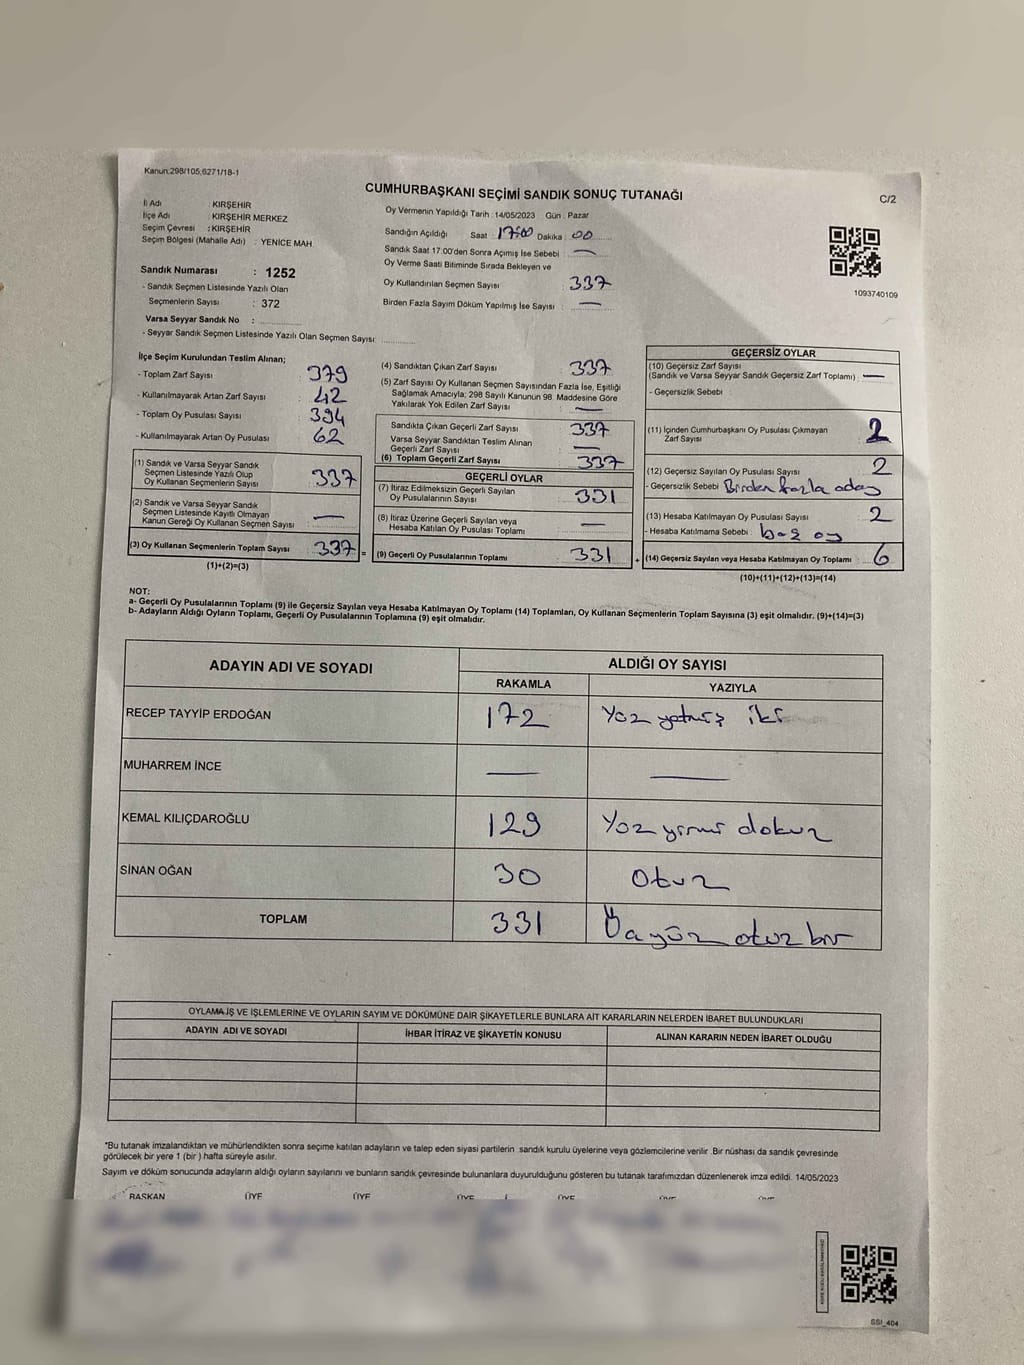 Kanun:298/105,6271/18-1
CUMHURBAŞKANI SEÇİMİ SANDIK SONUÇ TUTANAĞI
C/2
İl Adı KIRŞEHİR
İlçe Adı : KIRŞEHİR MERKEZ
Seçim Çevresi : KIRŞEHİR
Seçim Bölgesi (Mahalle Adı) : YENİCE MAH
Sandık Numarası : 1252
- Sandık Seçmen Listesinde Yazılı Olan
Seçmenlerin Sayısı : 372
Varsa Seyyar Sandık No :
- Seyyar Sandık Seçmen Listesinde Yazılı Olan Seçmen Sayısı:
Oy Vermenin Yapıldığı Tarih : 14/05/2023 Gün : Pazar
Sandığın Açıldığı Saat : 17:00 Dakika : 00
Sandık Saat 17:00'den Sonra Açımış İse Sebebi : —
Oy Verme Saati Bitiminde Sırada Bekleyen ve
Oy Kullandırılan Seçmen Sayısı : 337
Birden Fazla Sayım Döküm Yapılmış İse Sayısı : —
1093740109
İlçe Seçim Kurulundan Teslim Alınan;
- Toplam Zarf Sayısı : 379
- Kullanılmayarak Artan Zarf Sayısı : 42
- Toplam Oy Pusulası Sayısı : 394
- Kullanılmayarak Artan Oy Pusulası : 62
(1) Sandık ve Varsa Seyyar Sandık
Seçmen Listesinde Yazılı Olup
Oy Kullanan Seçmenlerin Sayısı : 337
(2) Sandık ve Varsa Seyyar Sandık
Seçmen Listesinde Kayıtlı Olmayan
Kanun Gereği Oy Kullanan Seçmen Sayısı : —
(3) Oy Kullanan Seçmenlerin Toplam Sayısı : 337 =
(1)+(2)=(3)
(4) Sandıktan Çıkan Zarf Sayısı : 337
(5) Zarf Sayısı Oy Kullanan Seçmen Sayısından Fazla İse, Eşitliği
Sağlamak Amacıyla; 298 Sayılı Kanunun 98. Maddesine Göre
Yakılarak Yok Edilen Zarf Sayısı : —
Sandıkta Çıkan Geçerli Zarf Sayısı : 337
Varsa Seyyar Sandıktan Teslim Alınan
Geçerli Zarf Sayısı : —
(6) Toplam Geçerli Zarf Sayısı : 337
GEÇERLİ OYLAR
(7) İtiraz Edilmeksizin Geçerli Sayılan
Oy Pusulalarının Sayısı : 331
(8) İtiraz Üzerine Geçerli Sayılan veya
Hesaba Katılan Oy Pusulası Toplamı : —
(9) Geçerli Oy Pusulalarının Toplamı : 331 +
GEÇERSİZ OYLAR
(10) Geçersiz Zarf Sayısı
(Sandık ve Varsa Seyyar Sandık Geçersiz Zarf Toplamı) : —
- Geçersizlik Sebebi :
(11) İçinden Cumhurbaşkanı Oy Pusulası Çıkmayan
Zarf Sayısı : 2
(12) Geçersiz Sayılan Oy Pusulası Sayısı : 2
- Geçersizlik Sebebi : Birden fazla aday
(13) Hesaba Katılmayan Oy Pusulası Sayısı : 2
- Hesaba Katılmama Sebebi : boş oy
(14) Geçersiz Sayılan veya Hesaba Katılmayan Oy Toplamı : 6
(10)+(11)+(12)+(13)=(14)
NOT:
a- Geçerli Oy Pusulalarının Toplamı (9) ile Geçersiz Sayılan veya Hesaba Katılmayan Oy Toplamı (14) Toplamları, Oy Kullanan Seçmenlerin Toplam Sayısına (3) eşit olmalıdır. (9)+(14)=(3)
b- Adayların Aldığı Oyların Toplamı, Geçerli Oy Pusulalarının Toplamına (9) eşit olmalıdır.
ADAYIN ADI VE SOYADI ALDIĞI OY SAYISI
RAKAMLA YAZIYLA
RECEP TAYYİP ERDOĞAN 172 Yüz yetmiş iki
MUHARREM İNCE — —
KEMAL KILIÇDAROĞLU 129 Yüz yirmi dokuz
SİNAN OĞAN 30 Otuz
TOPLAM 331 Üçyüz otuz bir
OYLAMA İŞ VE İŞLEMLERİNE VE OYLARIN SAYIM VE DÖKÜMÜNE DAİR ŞİKAYETLERLE BUNLARA AİT KARARLARIN NELERDEN İBARET BULUNDUKLARI
ADAYIN ADI VE SOYADI İHBAR İTİRAZ VE ŞİKAYETİN KONUSU ALINAN KARARIN NEDEN İBARET OLDUĞU
*Bu tutanak imzalandıktan ve mühürlendikten sonra seçime katılan adayların ve talep eden siyasi partilerin sandık kurulu üyelerine veya gözlemcilerine verilir. Bir nüshası da sandık çevresinde
görülecek bir yere 1 (bir ) hafta süreyle asılır.
Sayım ve döküm sonucunda adayların aldığı oyların sayılarını ve bunların sandık çevresinde bulunanlara duyurulduğunu gösteren bu tutanak tarafımızdan düzenlenerek imza edildi. 14/05/2023
BAŞKAN ÜYE ÜYE ÜYE ÜYE ÜYE ÜYE
SSI_404